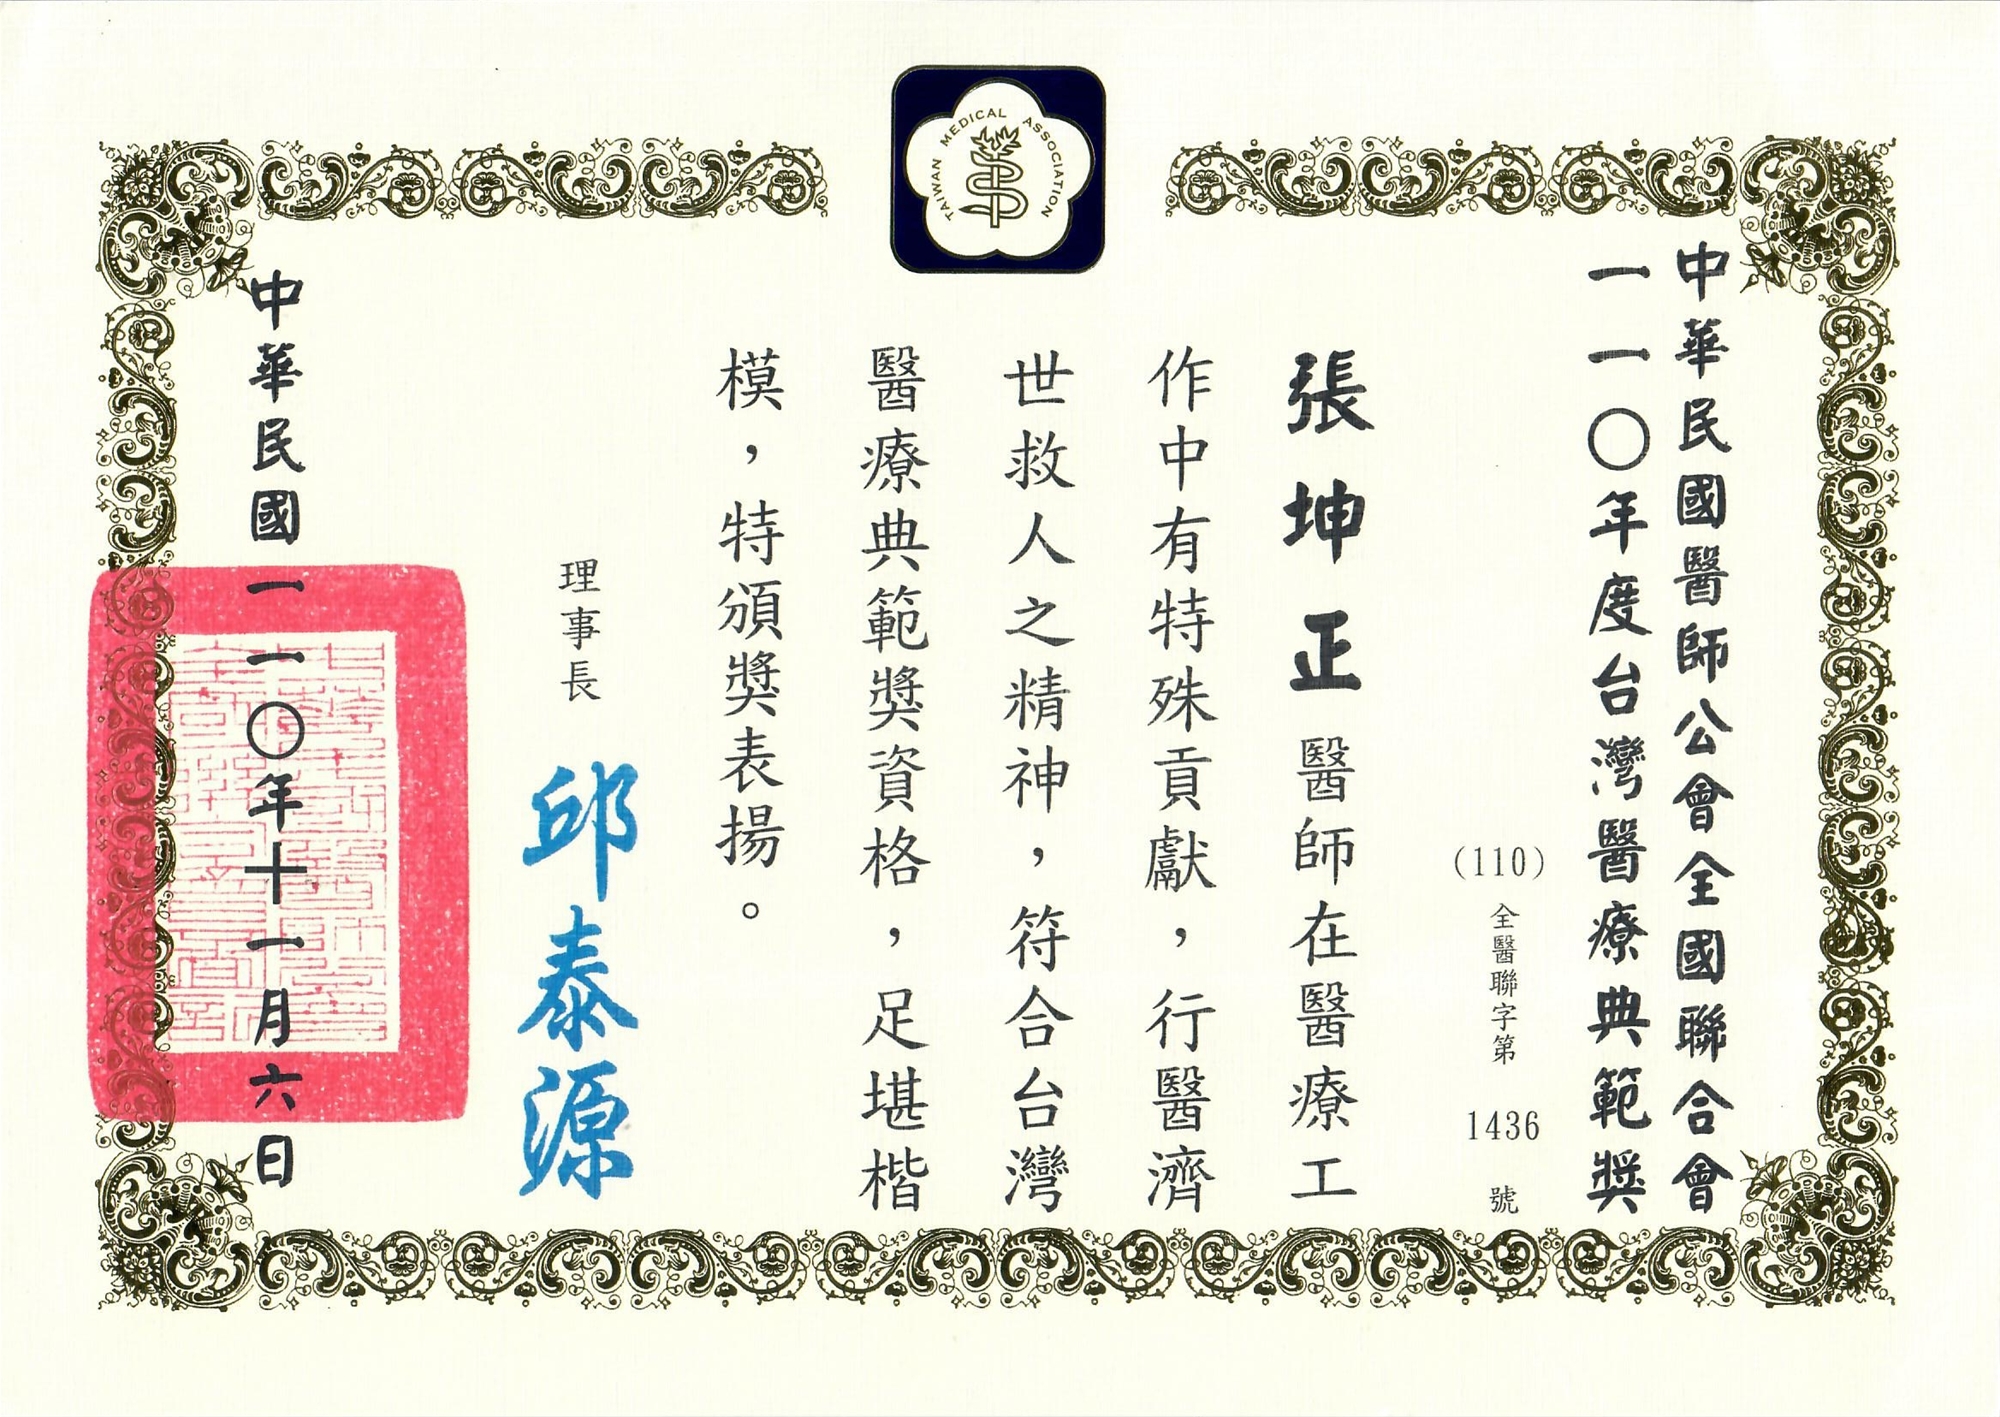 TAIWAN MEDICAL ASSOCIATION
中華民國醫師公會全國聯合會
一一〇年度台灣醫療典範獎
(110) 全醫聯字第 1436 號
張坤正醫師在醫療工
作中有特殊貢獻，行醫濟
世救人之精神，符合台灣
醫療典範獎資格，足堪楷
模，特頒獎表揚。
理事長 邱泰源
中華民國一一〇年十一月六日